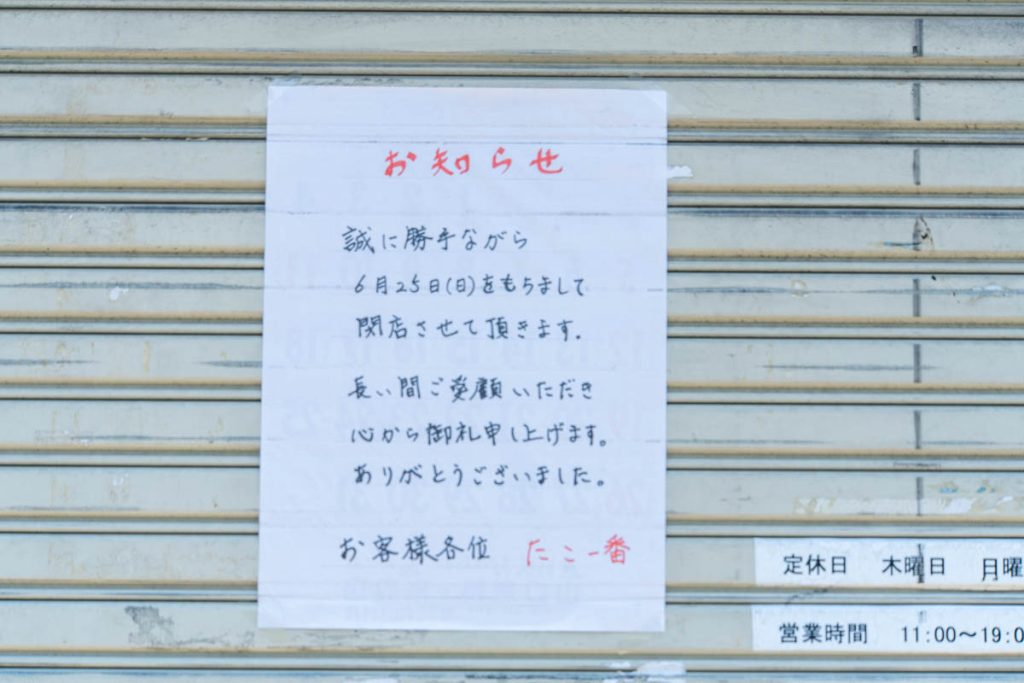 お知らせ
誠に勝手ながら
6月25日(日)をもちまして
閉店させて頂きます。
長い間ご愛顧いただき
心から御礼申し上げます。
ありがとうございました。
お客様各位 たこ一番
定休日 木曜日 月曜
営業時間 11:00～19:0